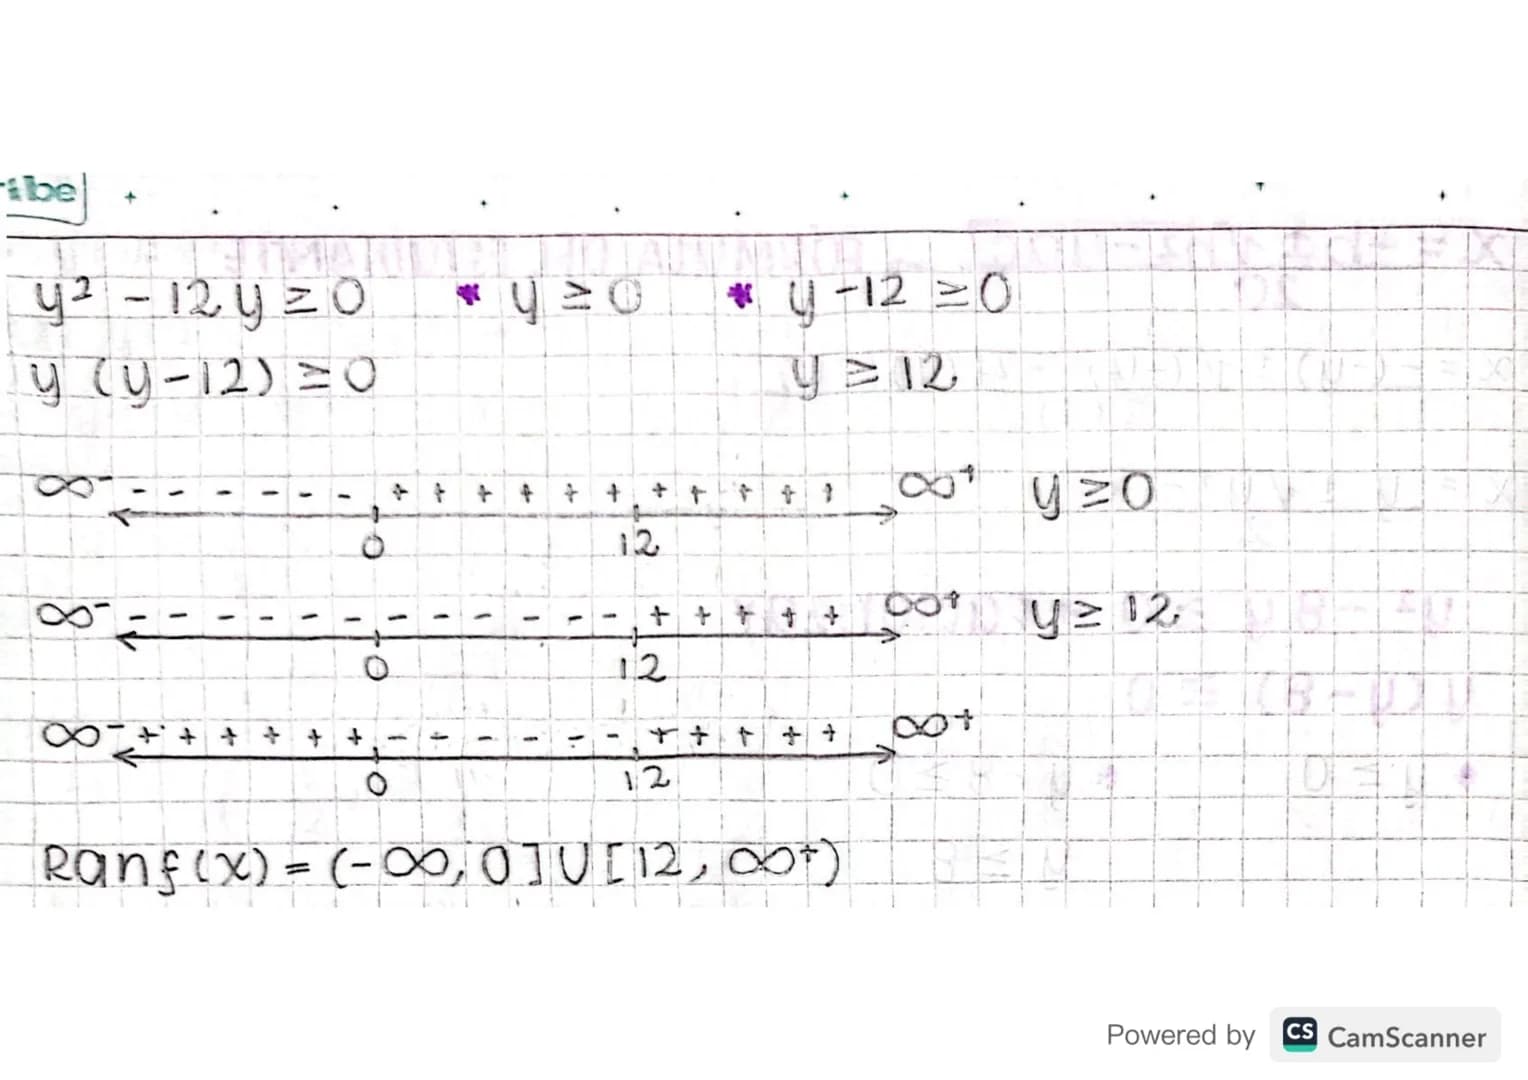 ibe
y² - 12y ≥ 0 * y ≥ 0 * y - 12 ≥ 0
y (y - 12) ≥ 0 y ≥ 12
∞⁻ - - - - - - + + + + + + + + + + + ∞⁺ y ≥ 0
0 12
∞⁻ - - - - - - - - - - - - + + + + + ∞⁺ y ≥ 12
0 12
∞⁻ + + + + + + - - - - - - + + + + + ∞⁺
0 12
Ranf(x) = (-∞, 0] U [12, ∞⁺)
Powered by CS CamScanner